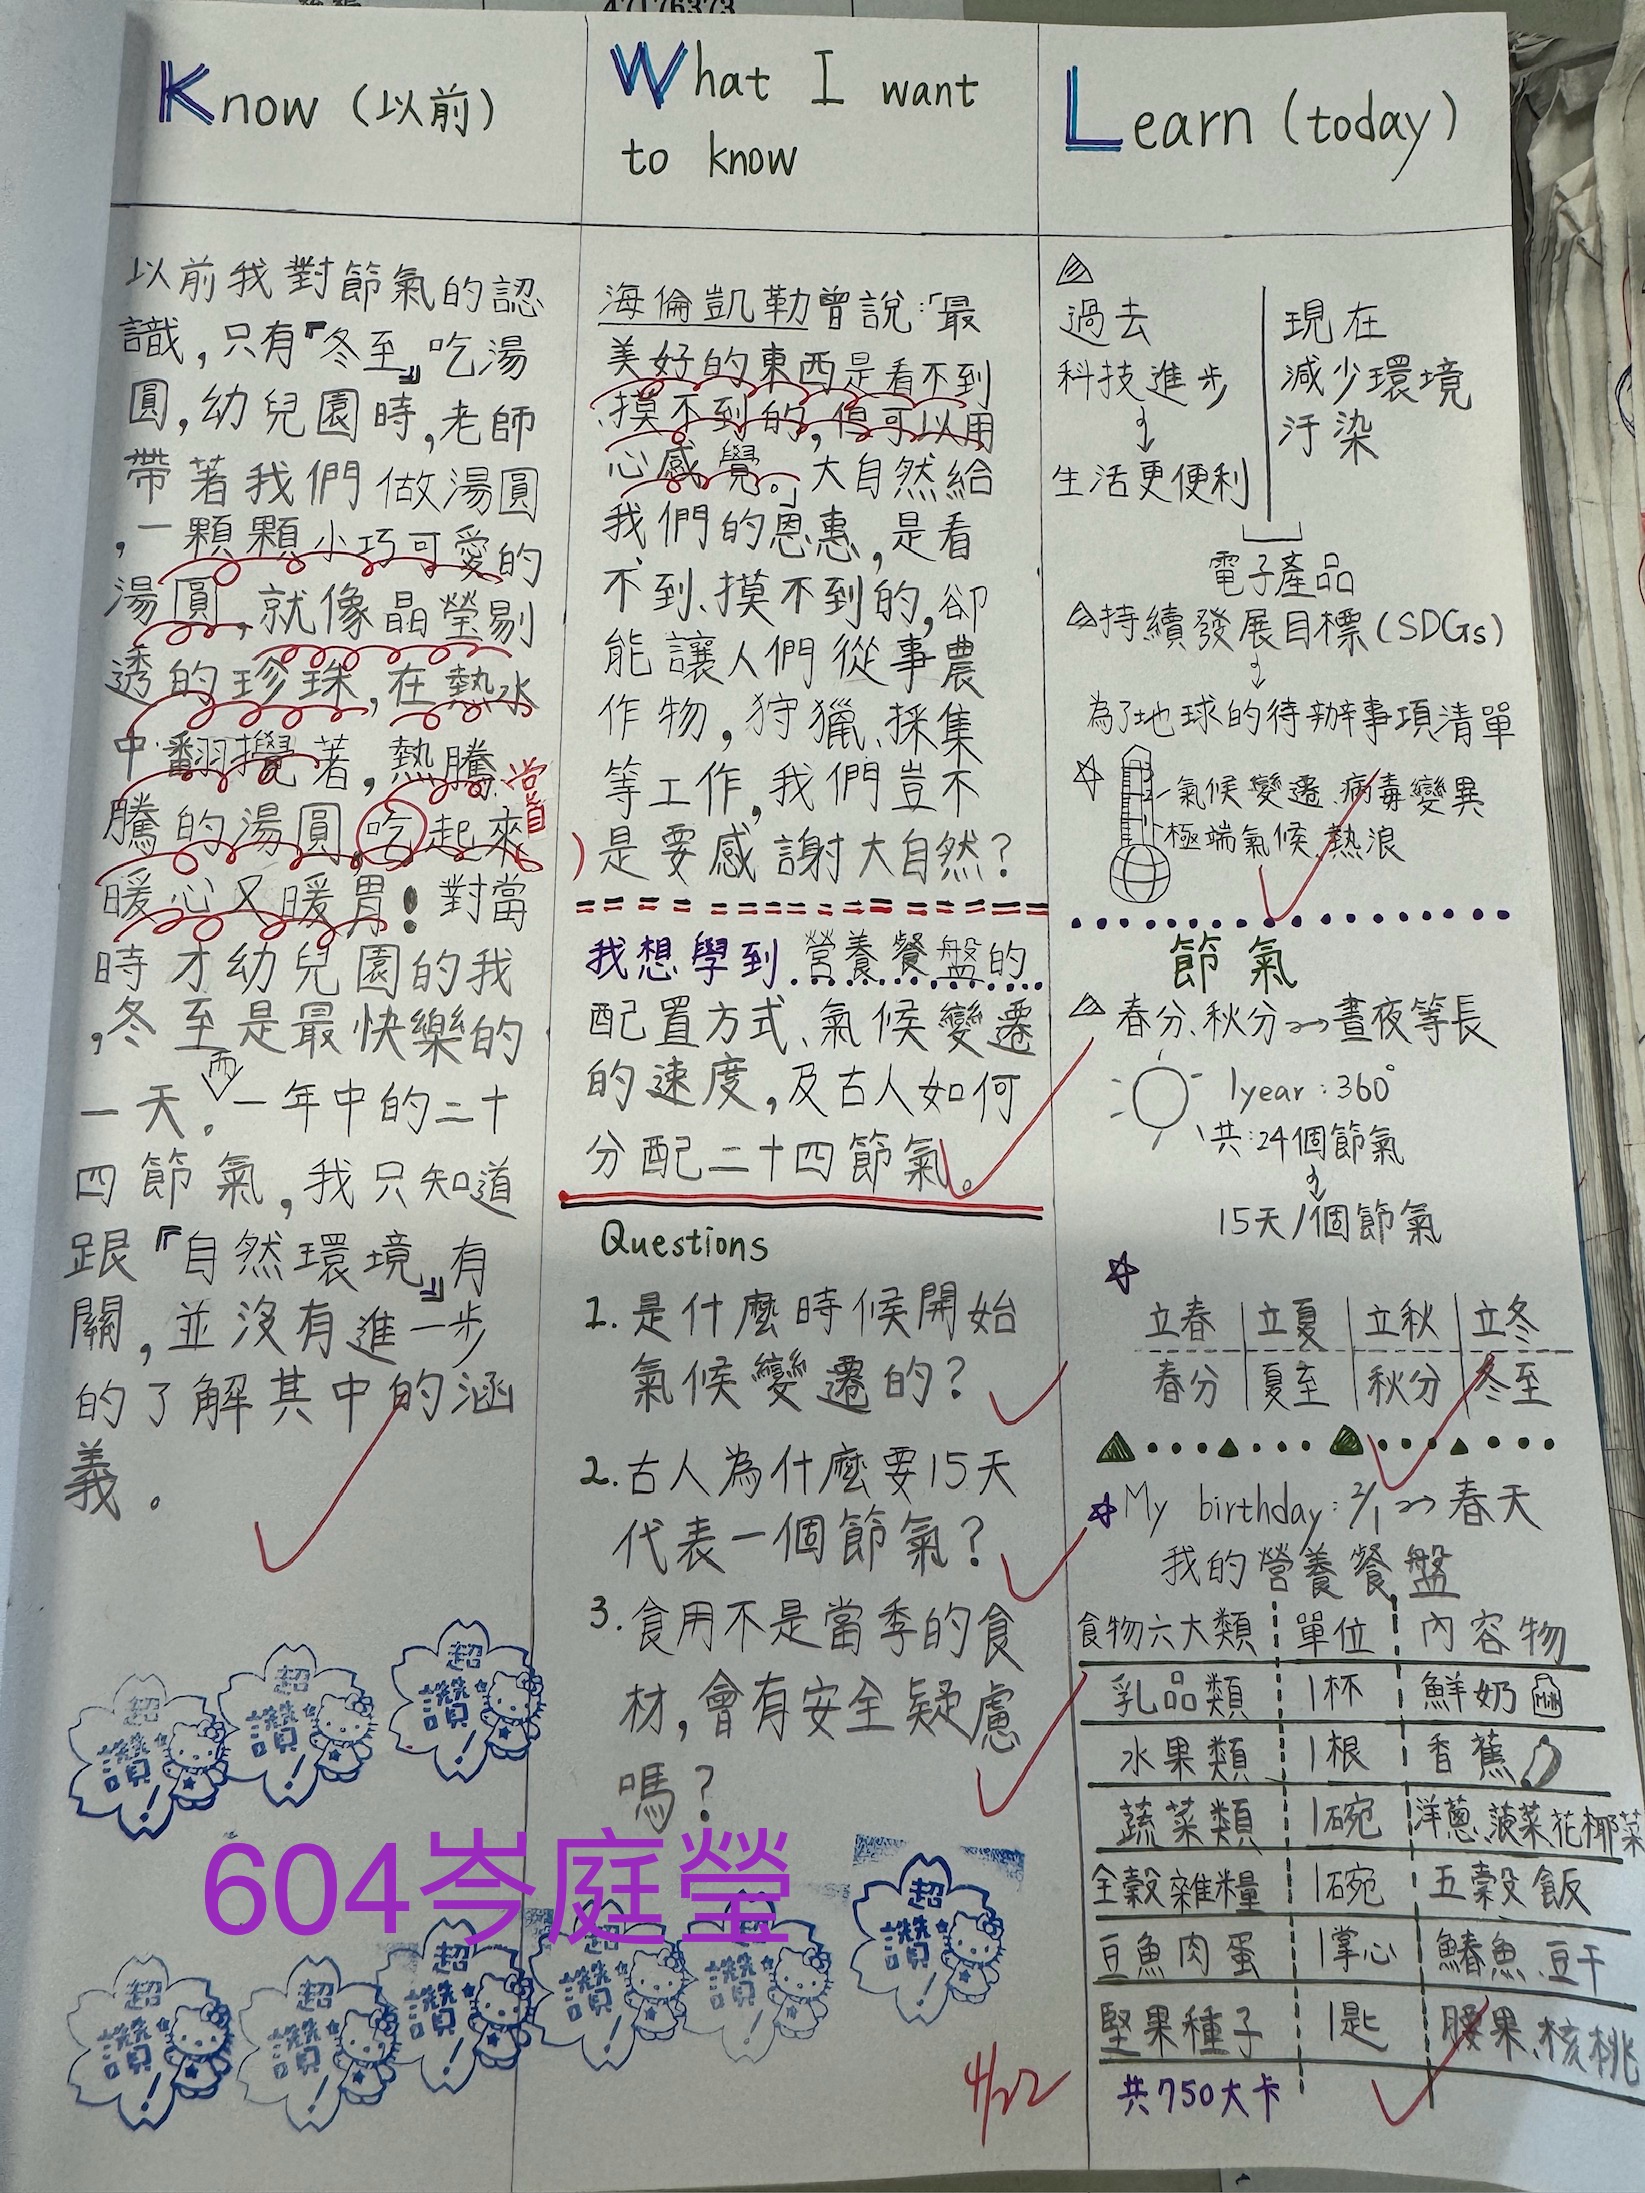 47176373
Know (以前)
以前我對節氣的認
識,只有『冬至』吃湯
圓,幼兒園時,老師
帶著我們做湯圓
,一顆顆小巧可愛的
湯圓,就像晶瑩剔
透的珍珠,在熱水
中翻攪著,熱騰
騰的湯圓,吃起來
嘗
暖心又暖胃!對當
時才幼兒園的我
,冬至是最快樂的
一天。而一年中的二十
四節氣,我只知道
跟『自然環境』有
關,並沒有進一步
的了解其中的涵
義。
What I want
to know
海倫凱勒曾說:「最
美好的東西是看不到
、摸不到的,但可以用
心感覺。」大自然給
我們的恩惠,是看
不到、摸不到的,卻
能讓人們從事農
作物,狩獵、採集
等工作,我們豈不
是要感謝大自然?
我想學到營養餐盤的
配置方式、氣候變遷
的速度,及古人如何
分配二十四節氣。
Questions
1. 是什麼時候開始
氣候變遷的?
2. 古人為什麼要15天
代表一個節氣?
3. 食用不是當季的食
材,會有安全疑慮
嗎?
Learn (today)
過去
科技進步
生活更便利
現在
減少環境
汙染
電子產品
持續發展目標(SDGs)
為了地球的待辦事項清單
氣候變遷、病毒變異
極端氣候、熱浪
節氣
春分、秋分→晝夜等長
1year:360°
共:24個節氣
15天/個節氣
立春 立夏 立秋 立冬
春分 夏至 秋分 冬至
My birthday:2/1→春天
我的營養餐盤
食物六大類 單位 內容物
乳品類 1杯 鮮奶 Milk
水果類 1根 香蕉
蔬菜類 1碗 洋蔥、菠菜、花椰菜
全穀雜糧 1碗 五穀飯
豆魚肉蛋 1掌心 鯖魚、豆干
堅果種子 1匙 腰果、核桃
共750大卡
超讚!
超讚!
超讚!
604岑庭瑩
超讚!
超讚!
超讚!
超讚!
超讚!
超讚!
4/22